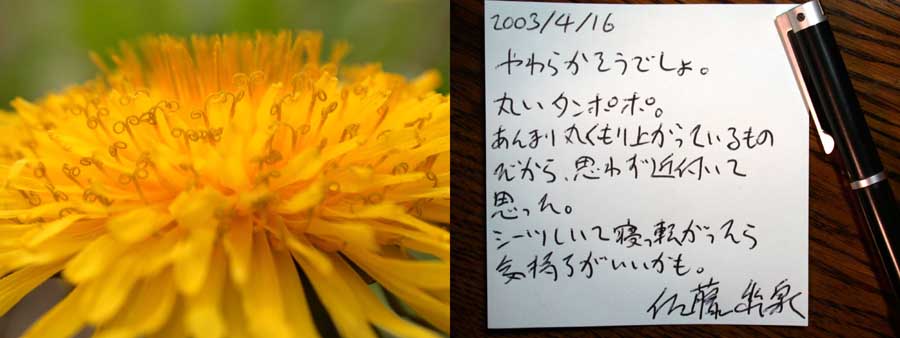 2003/4/16
やわらかそうでしょ。
丸いタンポポ。
あんまり丸くもり上がっているもの
だから、思わず近付いて
思った。
シーツしいて寝っ転がったら
気持ちがいいかも。
佐藤